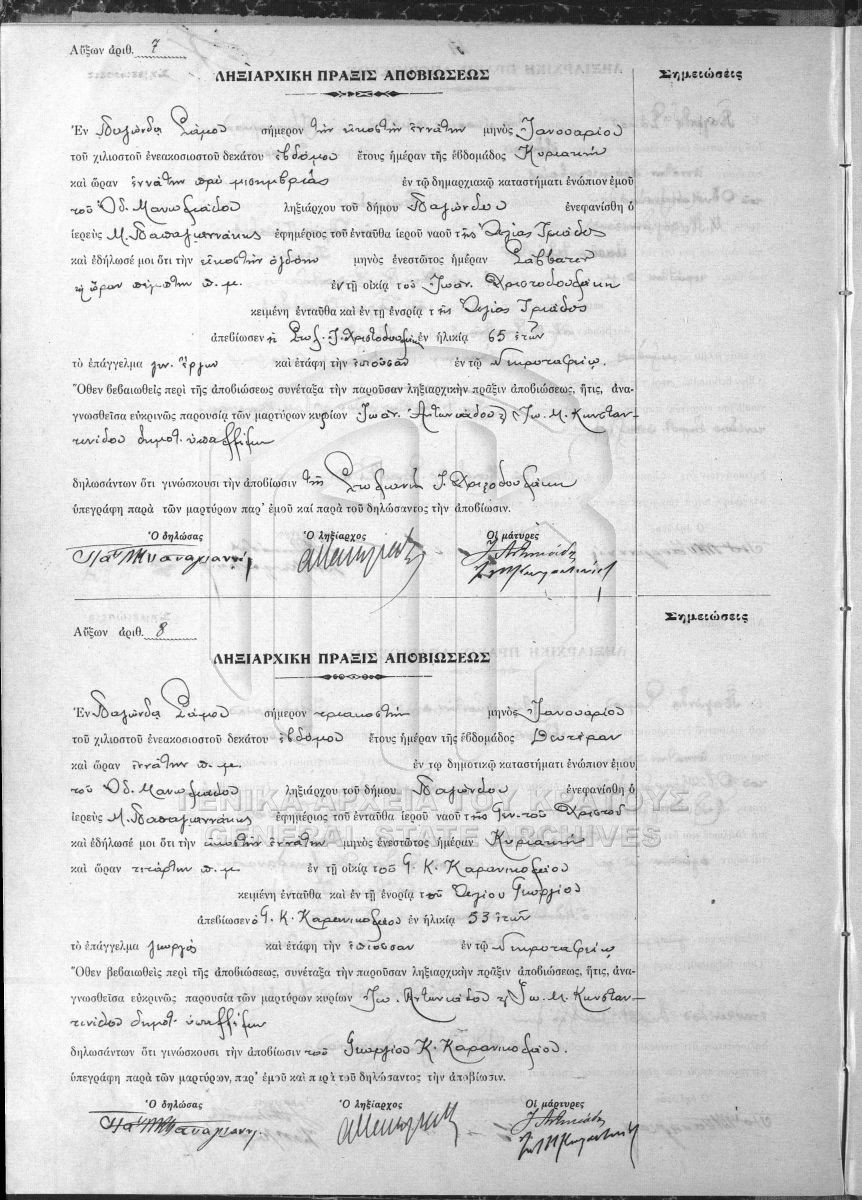 Αὔξων ἀριθ. 7
ΛΗΞΙΑΡΧΙΚΗ ΠΡΑΞΙΣ ΑΠΟΒΙΩΣΕΩΣ
Σημειώσεις
Ἐν Παγώνδᾳ Σάμου σήμερον τὴν εἰκοστὴν ἐννάτην μηνὸς Ἰανουαρίου
τοῦ χιλιοστοῦ ἐνεακοσιοστοῦ δεκάτου ἑβδόμου ἔτους ἡμέραν τῆς ἑβδομάδος Κυριακὴν
καὶ ὥραν ἐννάτην πρὸ μεσημβρίας ἐν τῷ δημαρχιακῷ καταστήματι ἐνώπιον ἐμοῦ
τοῦ Ὀδ. ληξιάρχου τοῦ δήμου Παγώνδου ἐνεφανίσθη ὁ
ἱερεὺς Μ. Παπαγιαννάκης ἐφημέριος τοῦ ἐνταῦθα ἱεροῦ ναοῦ τῆς Ἁγίας Τριάδος
καὶ ἐδήλωσέ μοι ὅτι τὴν εἰκοστὴν ὀγδόην μηνὸς ἐνεστῶτος ἡμέραν Σάββατον
ὥραν πέμπτην π. μ. ἐν τῇ οἰκίᾳ τοῦ Ἰωάν. Χριστοδουλάκη
κειμένη ἐνταῦθα καὶ ἐν τῇ ἐνορίᾳ τῆς Ἁγίας Τριάδος
ἀπεβίωσεν ἡ Ι. Χριστοδουλάκη ἐν ἡλικίᾳ 65 ἐτῶν
τὸ ἐπάγγελμα ἔργων καὶ ἐτάφη τὴν ἐπιοῦσαν ἐν τῷ νεκροταφείῳ.
Ὅθεν βεβαιωθεὶς περὶ τῆς ἀποβιώσεως συνέταξα τὴν παροῦσαν ληξιαρχικὴν πρᾶξιν ἀποβιώσεως, ἥτις, ἀνα-
γνωσθεῖσα εὐκρινῶς παρουσίᾳ τῶν μαρτύρων κυρίων Ἰωάν. Ἀντωνιάδου Ἰω. Μ. Κωνσταν-
τινίδου δημοτ. ὑπαλλήλων
δηλωσάντων ὅτι γινώσκουσι τὴν ἀποβίωσιν τῆς Ι. Χριστοδουλάκη
ὑπεγράφη παρὰ τῶν μαρτύρων παρ' ἐμοῦ καὶ παρὰ τοῦ δηλώσαντος τὴν ἀποβίωσιν.
Ὁ δηλώσας Ὁ ληξίαρχος Οἱ μάρτυρες
Αὔξων ἀριθ. 8
Σημειώσεις
ΛΗΞΙΑΡΧΙΚΗ ΠΡΑΞΙΣ ΑΠΟΒΙΩΣΕΩΣ
Ἐν Παγώνδᾳ Σάμου σήμερον τριακοστὴν μηνὸς Ἰανουαρίου
τοῦ χιλιοστοῦ ἐνεακοσιοστοῦ δεκάτου ἑβδόμου ἔτους ἡμέραν τῆς ἑβδομάδος Δευτέραν
καὶ ὥραν ἐννάτην π. μ. ἐν τῳ δημοτικῷ καταστήματι ἐνώπιον ἐμοῦ
τοῦ Ὀδ. ληξιάρχου τοῦ δήμου Παγώνδου ἐνεφανίσθη ὁ
ἱερεὺς Μ. Παπαγιαννάκης ἐφημέριος τοῦ ἐνταῦθα ἱεροῦ ναοῦ τῆς Γεν. τοῦ Χριστοῦ
καὶ ἐδήλωσέ μοι ὅτι τὴν εἰκοστὴν ἐννάτην μηνὸς ἐνεστῶτος ἡμέραν Κυριακὴν
καὶ ὥραν τετάρτην π. μ. ἐν τῇ οἰκίᾳ τοῦ Γ. Κ. Καρανικολάου
κειμένη ἐνταῦθα καὶ ἐν τῇ ἐνορίᾳ τοῦ Ἁγίου Γεωργίου
ἀπεβίωσεν ὁ Γ. Κ. Καρανικολάου ἐν ἡλικίᾳ 53 ἐτῶν
τὸ ἐπάγγελμα γεωργὸς καὶ ἐτάφη τὴν ἐπιοῦσαν ἐν τῷ νεκροταφείῳ
Ὅθεν βεβαιωθεὶς περὶ τῆς ἀποβιώσεως, συνέταξα τὴν παροῦσαν ληξιαρχικὴν πρᾶξιν ἀποβιώσεως, ἥτις, ἀνα-
γνωσθεῖσα εὐκρινῶς παρουσίᾳ τῶν μαρτύρων κυρίων Ἰω. Ἀντωνιάδου Ἰω. Μ. Κωνσταν-
τινίδου δημοτ. ὑπαλλήλων
δηλωσάντων ὅτι γινώσκουσι τὴν ἀποβίωσιν τοῦ Γεωργίου Κ. Καρανικολάου.
ὑπεγράφη παρὰ τῶν μαρτύρων, παρ' ἐμοῦ καὶ παρὰ τοῦ δηλώσαντος τὴν ἀποβίωσιν.
Ὁ δηλώσας Ὁ ληξίαρχος Οἱ μάρτυρες
ΓΕΝΙΚΑ ΑΡΧΕΙΑ ΤΟΥ ΚΡΑΤΟΥΣ
GENERAL STATE ARCHIVES